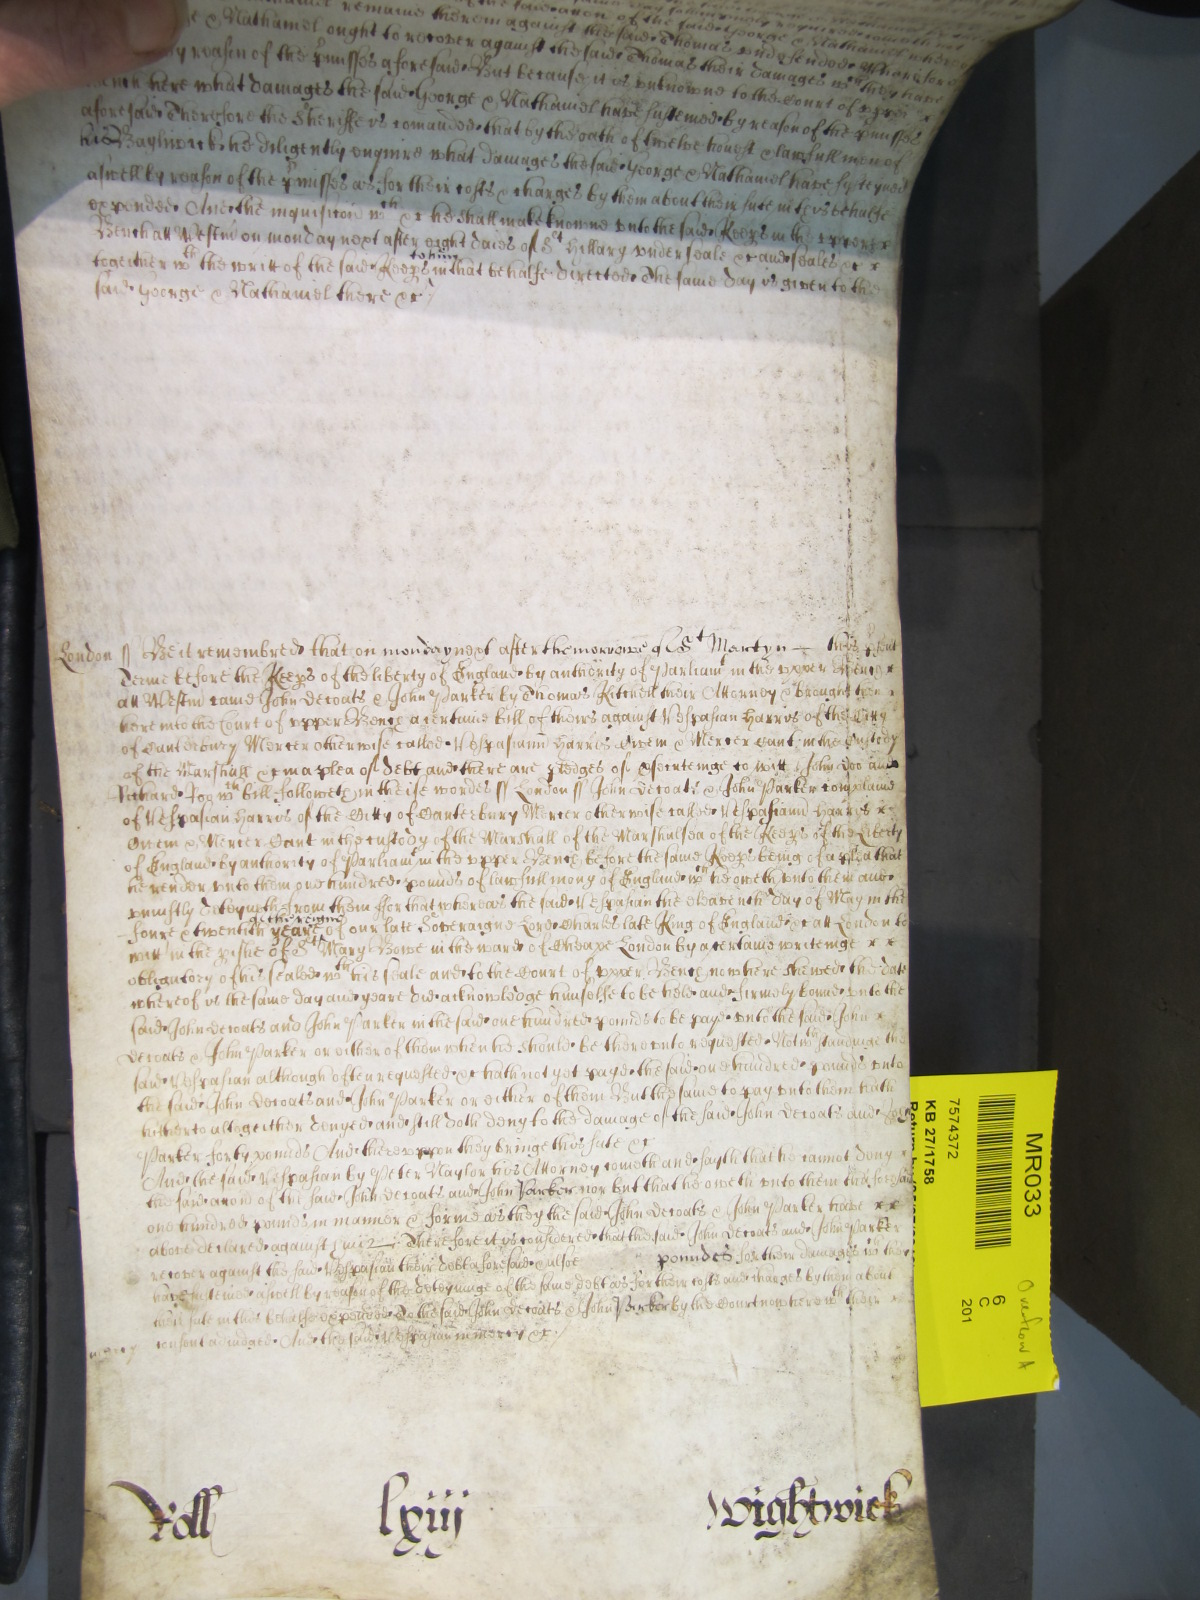 remaine therein against the said Thomas undefended Wherefore
& Nathaniel ought to recover against the said Thomas their damages wch they have
by reason of the p'misses aforesaid But because it is unknowne to the Court of upper
here what damages the said George & Nathaniel have susteined by reason of the p'misses
aforesaid Therefore the Sheriffe is comanded that by the oath of twelve honest & lawfull men of
his Bayliwick he diligently enquire what damages the said George & Nathaniel have susteyned
aswell by reason of the p'misses as for their costs & charges by them about their sute in this behalfe
expended And the inquisicion wch &c he shall make knowne unto the said Keeps in the upper
Bench att Westm on monday next after eight daies of St Hillary under seale &c and seales &c
together wth the writt of the said Keeps to him in that behalfe directed The same day is given to the
said George & Nathaniel there &c /
London ss Be it remembred that on monday next after the morrowe of St Martyn this p'sent
Terme before the Keeps of the liberty of England by authority of Parliamt in the upper Bench
att Westm came John Decoats & John Parker by Thomas Kitchell their Attorney & brought then
here into the Court of upper Bench a certaine bill of theirs against Vespasian Harris of the Citty
of Canterbury Mercer otherwise called Vespasiann Harris Civem & Mercer Cant in the Custody
of the Marshall &c in a plea of debt and there are pledges of p'secuteinge to witt John Doo and
Richard Roo wch bill followeth in theise wordes ss London ss John Decoats & John Parker complaine
of Vespasian Harris of the Citty of Canterbury Mercer otherwise called Vespasiann Harris
Civem & Mercer Cant in the custody of the Marshall of the Marshalsea of the Keeps of the Liberty
of England by authority of Parliamt in the upper Bench before the same Keeps being of a plea that
he render unto them one hundred pounds of lawfull mony of England wch he oweth unto them and
uniustly deteyneth from them For that whereas the said Vespasian the eleaventh day of May in the
foure & twentith yeare of the reigne of our late Soveraigne Lord Charles late King of England &c att London to
witt in the p'ishe of St Mary Bowe in the ward of Cheape London by a certaine writeinge
obligatory of his sealed wth his seale and to the Court of upper Bench now here shewed the date
whereof is the same day and yeare did acknowledge himselfe to be held and firmely bound unto the
said John Decoats and John Parker in the said one hundred pounds to be payd unto the said John
Decoats & John Parker or either of them when hee should be thereunto requested Notwthstandinge the
said Vespasian although often requested &c hath not yet payd the said one hundred pounds unto
the said John Decoats and John Parker or either of them But the same to pay unto them hath
hitherto altogeither denyed and still doth deny to the damage of the said John Decoats and John
Parker forty pounds And thereuppon they bringe this sute &c
And the said Vespasian by Peter Naylor his Attorney cometh and sayth that he cannot deny
the said accon of the said John Decoats and John Parker nor but that he oweth unto them the foresaid
one hundred pounds in manner & forme as they the said John Decoats & John Parker have
above declared against him Therefore it is considered that the said John Decoats and John Parker
recover against the said Vespasian their debt aforesaid & alsoe pounds for their damages wch they
have susteined aswell by reason of the deteyninge of the same debt as for their costs and charges by them about
their sute in this behalfe expended To the said John Decoats & John Parker by the Court now here wth their
consent adiudged And the said Vespasian in mercy &c /
mercy
Roll lxiij Wightwick
MR033
7574372
KB 27/1758
6
C
201
Overflow A